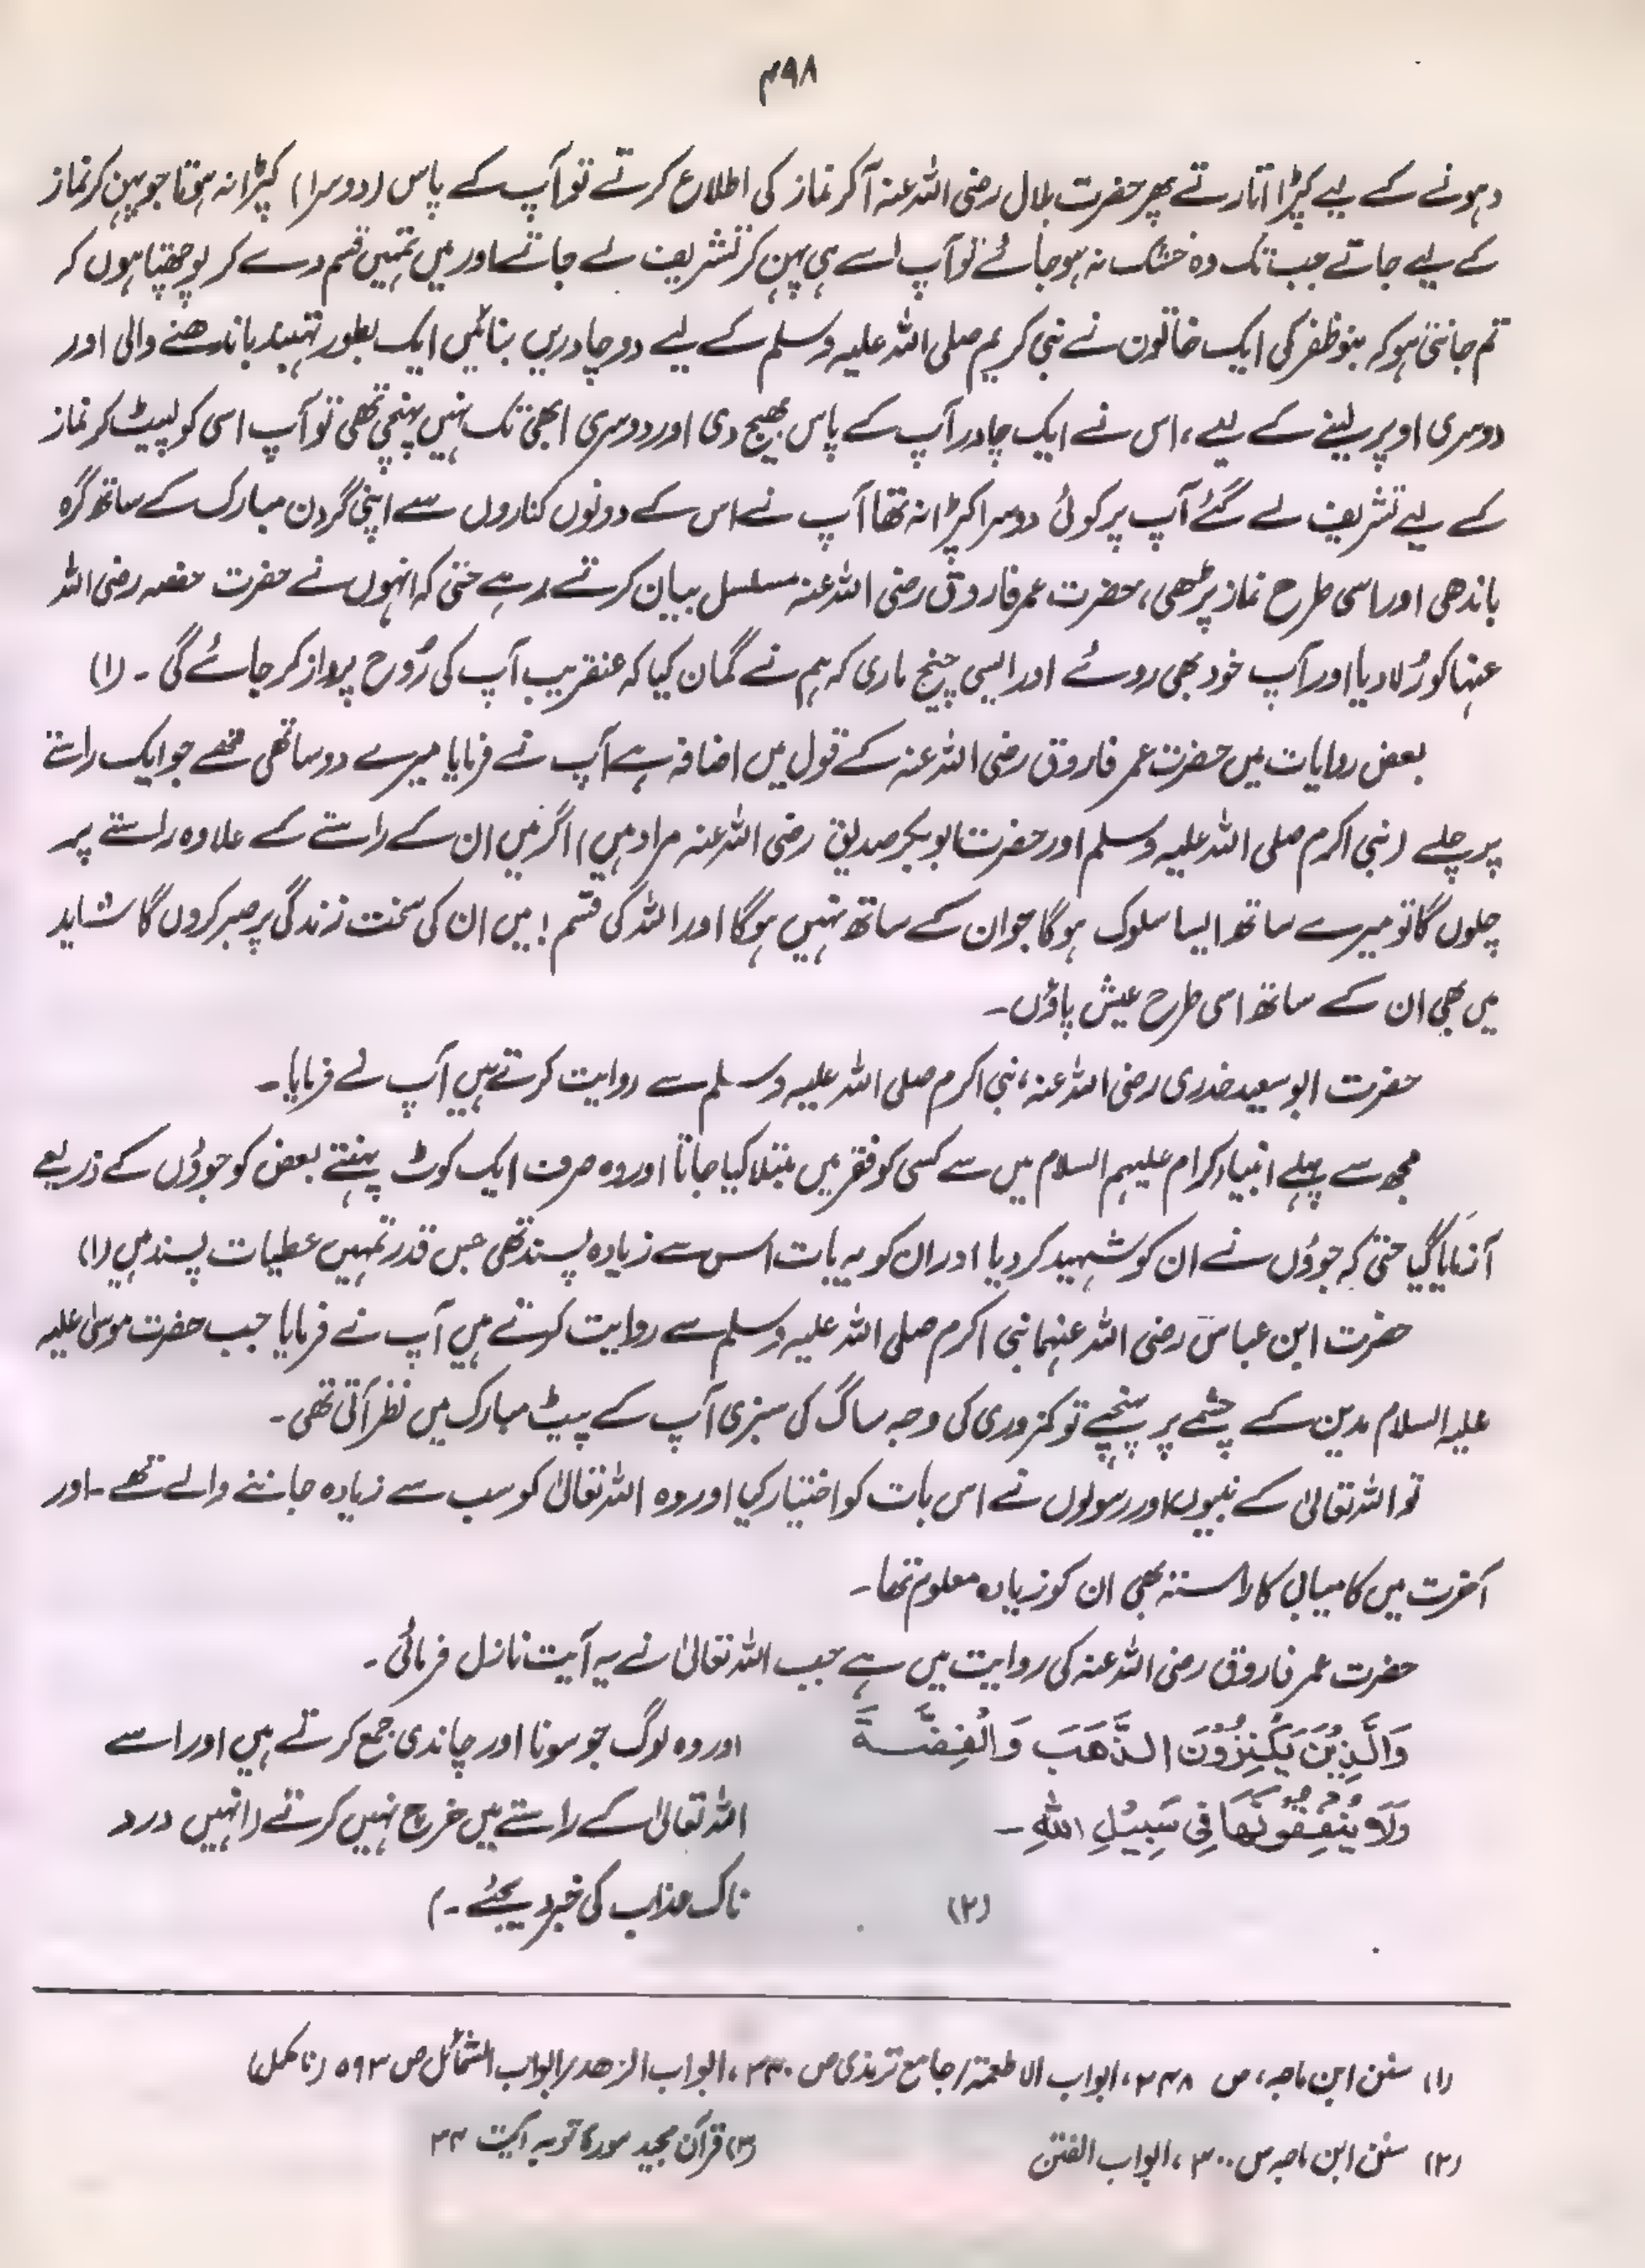 ۴۹۸
دہونے کے لیے کپڑا اتارتے پھر حضرت بلال رضی اللہ عنہ آکر نماز کی اطلاع کرتے تو آپ کے پاس (دوسرا) کپڑا نہ ہوتا جو پہن کر نماز
کے لیے جاتے جب تک وہ خشک نہ ہو جائے تو آپ اسے ہی پہن کر تشریف لے جاتے اور میں تمہیں قسم دے کر پوچھتا ہوں کہ
تم جانتی ہو کہ بنو ظفر کی ایک خاتون نے نبی کریم صلی اللہ علیہ وسلم کے لیے دو چادریں بنائیں ایک بطور تہبند باندھنے والی اور
دوسری اوپر لینے کے لیے، اس نے ایک چادر آپ کے پاس بھیج دی اور دوسری ابھی تک نہیں پہنچی تھی تو آپ اسی کو لپیٹ کر نماز
کے لیے تشریف لے گئے آپ پر کوئی دوسرا کپڑا نہ تھا آپ نے اس کے دونوں کناروں سے اپنی گردن مبارک کے ساتھ گرہ
باندھی اور اسی طرح نماز پڑھی، حضرت عمر فاروق رضی اللہ عنہ مسلسل بیان کرتے رہے حتیٰ کہ انہوں نے حضرت حفصہ رضی اللہ
عنہا کو رُلا دیا اور آپ خود بھی روئے اور ایسی چیخ ماری کہ ہم نے گمان کیا کہ عنقریب آپ کی رُوح پرواز کر جائے گی ۔ (۱)
بعض روایات میں حضرت عمر فاروق رضی اللہ عنہ کے قول میں اضافہ ہے آپ نے فرمایا میرے دو ساتھی تھے جو ایک راستے
پر چلے (نبی اکرم صلی اللہ علیہ وسلم اور حضرت ابوبکر صدیق رضی اللہ عنہ مراد ہیں) اگر میں ان کے راستے کے علاوہ راستے پر
چلوں گا تو میرے ساتھ ایسا سلوک ہو گا جو ان کے ساتھ نہیں ہو گا اور اللہ کی قسم! میں ان کی سخت زندگی پر صبر کروں گا شاید
میں بھی ان کے ساتھ اسی طرح عیش پاؤں۔
حضرت ابوسعید خدری رضی اللہ عنہ، نبی اکرم صلی اللہ علیہ وسلم سے روایت کرتے ہیں آپ نے فرمایا۔
مجھ سے پہلے انبیاء کرام علیہم السلام میں سے کسی کو فقر میں مبتلا کیا جاتا اور وہ صرف ایک کوٹ پہنتے بعض کو جوؤں کے ذریعے
آزمایا گیا حتیٰ کہ جوؤں نے ان کو شہید کر دیا اور ان کو یہ بات اس سے زیادہ پسند تھی جس قدر تمہیں عطیات پسند ہیں (۱)
حضرت ابن عباس رضی اللہ عنہما نبی اکرم صلی اللہ علیہ وسلم سے روایت کرتے ہیں آپ نے فرمایا جب حضرت موسیٰ علیہ
علیہ السلام مدین کے چشمے پر پہنچے تو کمزوری کی وجہ ساگ کی سبزی آپ کے پیٹ مبارک میں نظر آتی تھی۔
تو اللہ تعالیٰ کے نبیوں اور رسولوں نے اس بات کو اختیار کیا اور وہ اللہ تعالیٰ کو سب سے زیادہ جاننے والے تھے۔ اور
آخرت میں کامیابی کا راستہ بھی ان کو زیادہ معلوم تھا۔
حضرت عمر فاروق رضی اللہ عنہ کی روایت میں ہے جب اللہ تعالیٰ نے یہ آیت نازل فرمائی۔
وَالَّذِيْنَ يَكْنِزُوْنَ الذَّهَبَ وَالْفِضَّةَ اور وہ لوگ جو سونا اور چاندی جمع کرتے ہیں اور اسے
وَلَا يُنْفِقُوْنَهَا فِي سَبِيْلِ اللهِ۔ اللہ تعالیٰ کے راستے میں خرچ نہیں کرتے (انہیں درد
(۲) ناک عذاب کی خبر دیجئے۔)
(۱) سنن ابن ماجہ، ص ۲۴۸، ابواب الاطعمۃ / جامع ترمذی ص ۳۴۰، ابواب الزھد / ابواب الشمائل ص ۵۹۳ (نامکمل)
(۲) سنن ابن ماجہ ص ۳۰۰، ابواب الفتن (۳) قرآن مجید سورۃ توبہ آیت ۳۴